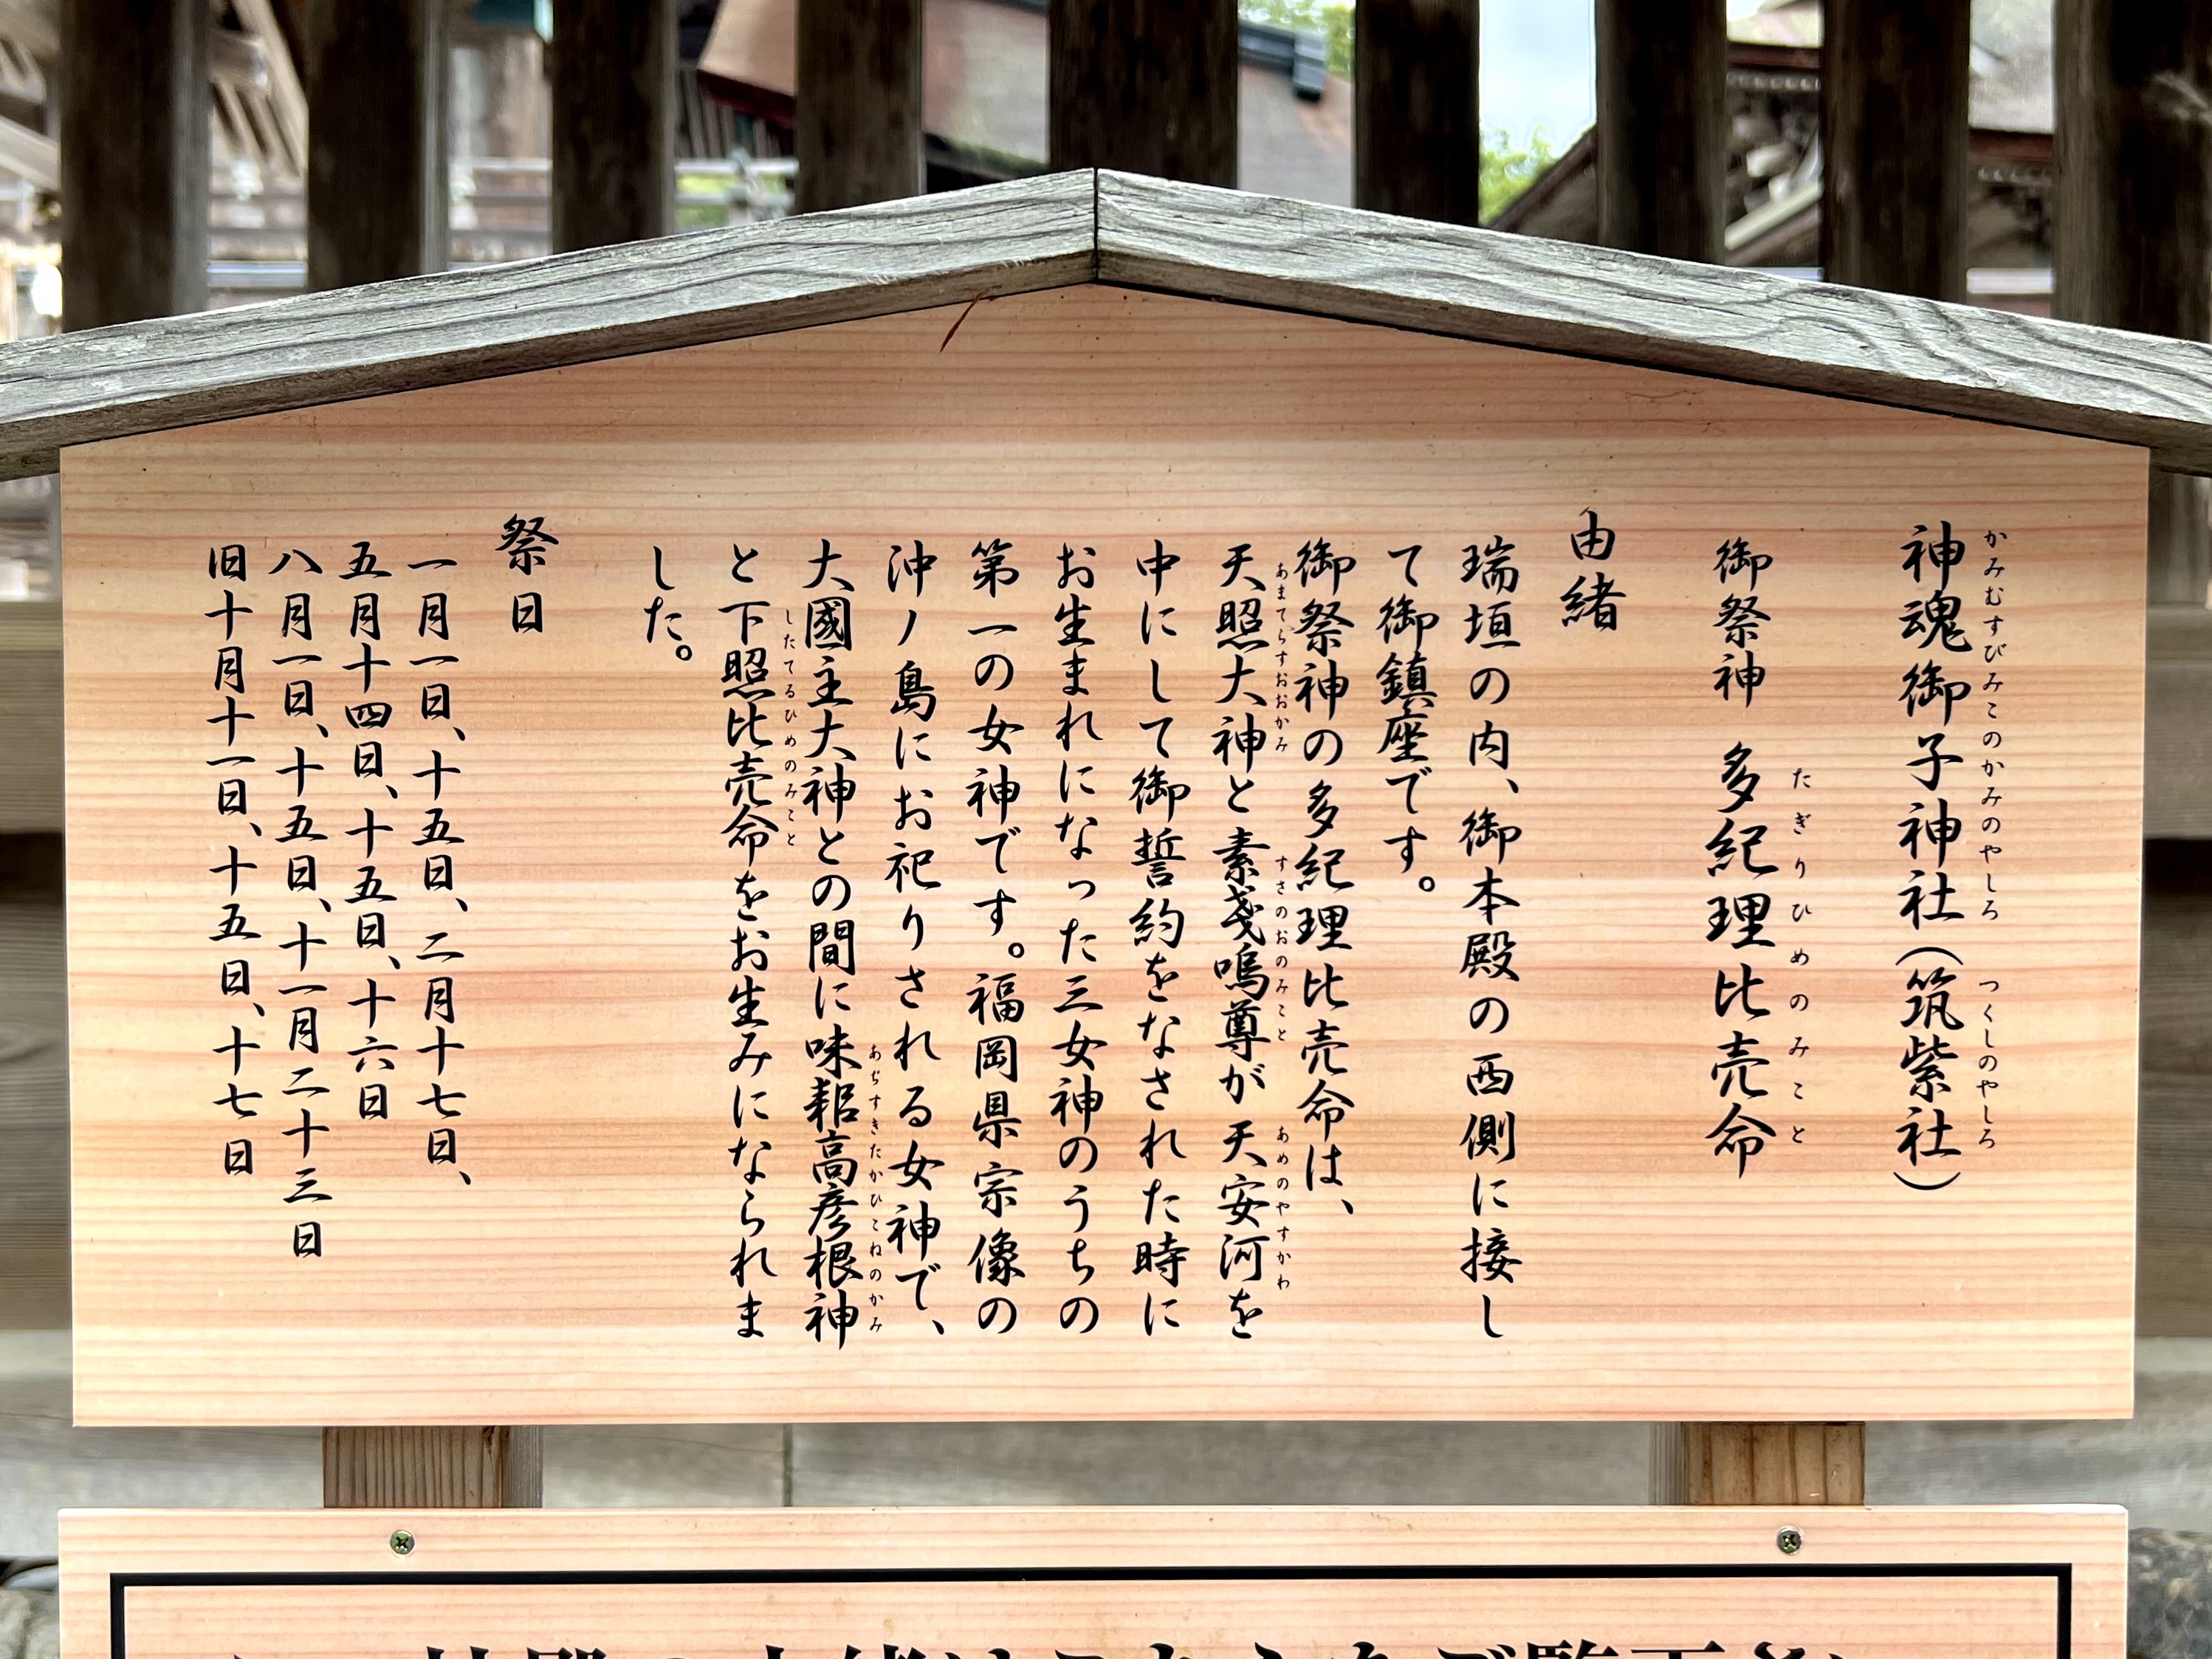 神魂御子神社(筑紫社)
かみむすびみこのかみのやしろ つくしのやしろ
御祭神 多紀理比売命
たぎりひめのみこと
由緒
瑞垣の内、御本殿の西側に接し
て御鎮座です。
御祭神の多紀理比売命は、
天照大神と素戔嗚尊が天安河を
あまてらすおおかみ すさのおのみこと あめのやすかわ
中にして御誓約をなされた時に
お生まれになった三女神のうちの
第一の女神です。福岡県宗像の
沖ノ島にお祀りされる女神で、
大國主大神との間に味耜高彦根神
あぢすきたかひこねのかみ
と下照比売命をお生みになられま
したてるひめのみこと
した。
祭日
一月一日、十五日、二月十七日、
五月十四日、十五日、十六日
八月一日、十五日、十一月二十三日
旧十月十一日、十五日、十七日